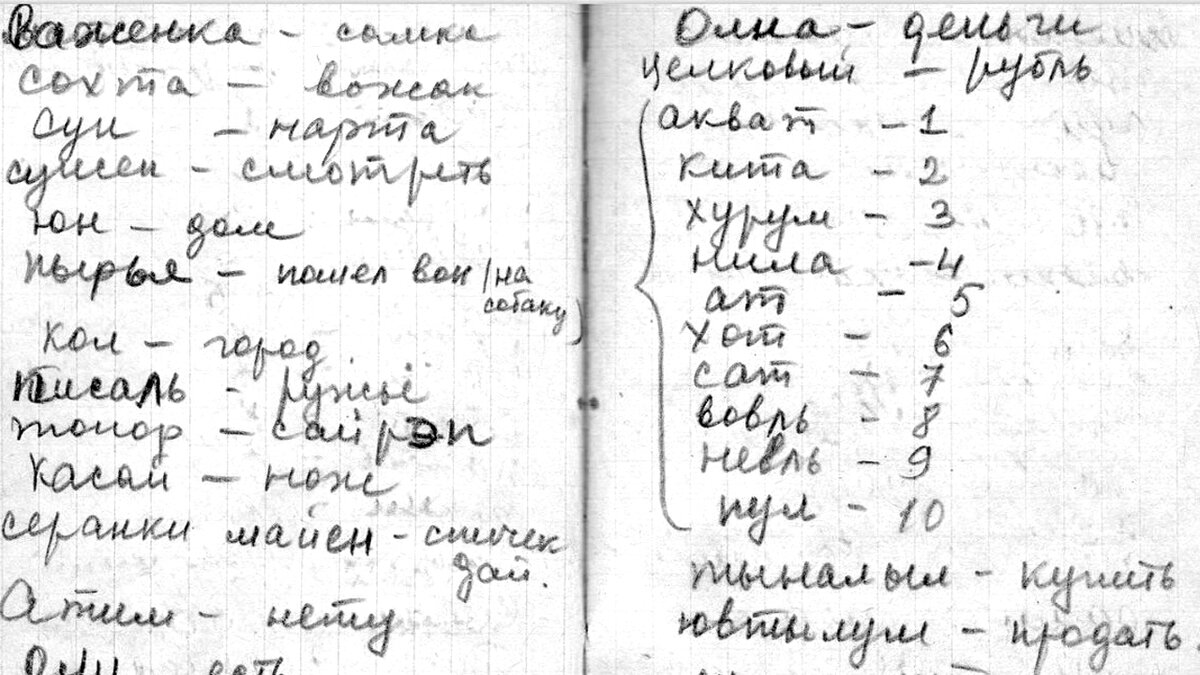 Важенка - самка
сохта - вожак
сун - нарта
сунсен - смотреть
юн - дом
пырья - пошел вон (на
собаку)
кол - город
писаль - ружьё
топор - сайрэп
касай - нож
серанки майен - спичек
дай.
Атим - нету
есть
Олна - деньги
целковый - рубль
акват - 1
кита - 2
хурум - 3
нила - 4
ат - 5
хот - 6
сат - 7
вовль - 8
невль - 9
пул - 10
тыналыл - купить
ювтылум - продать.